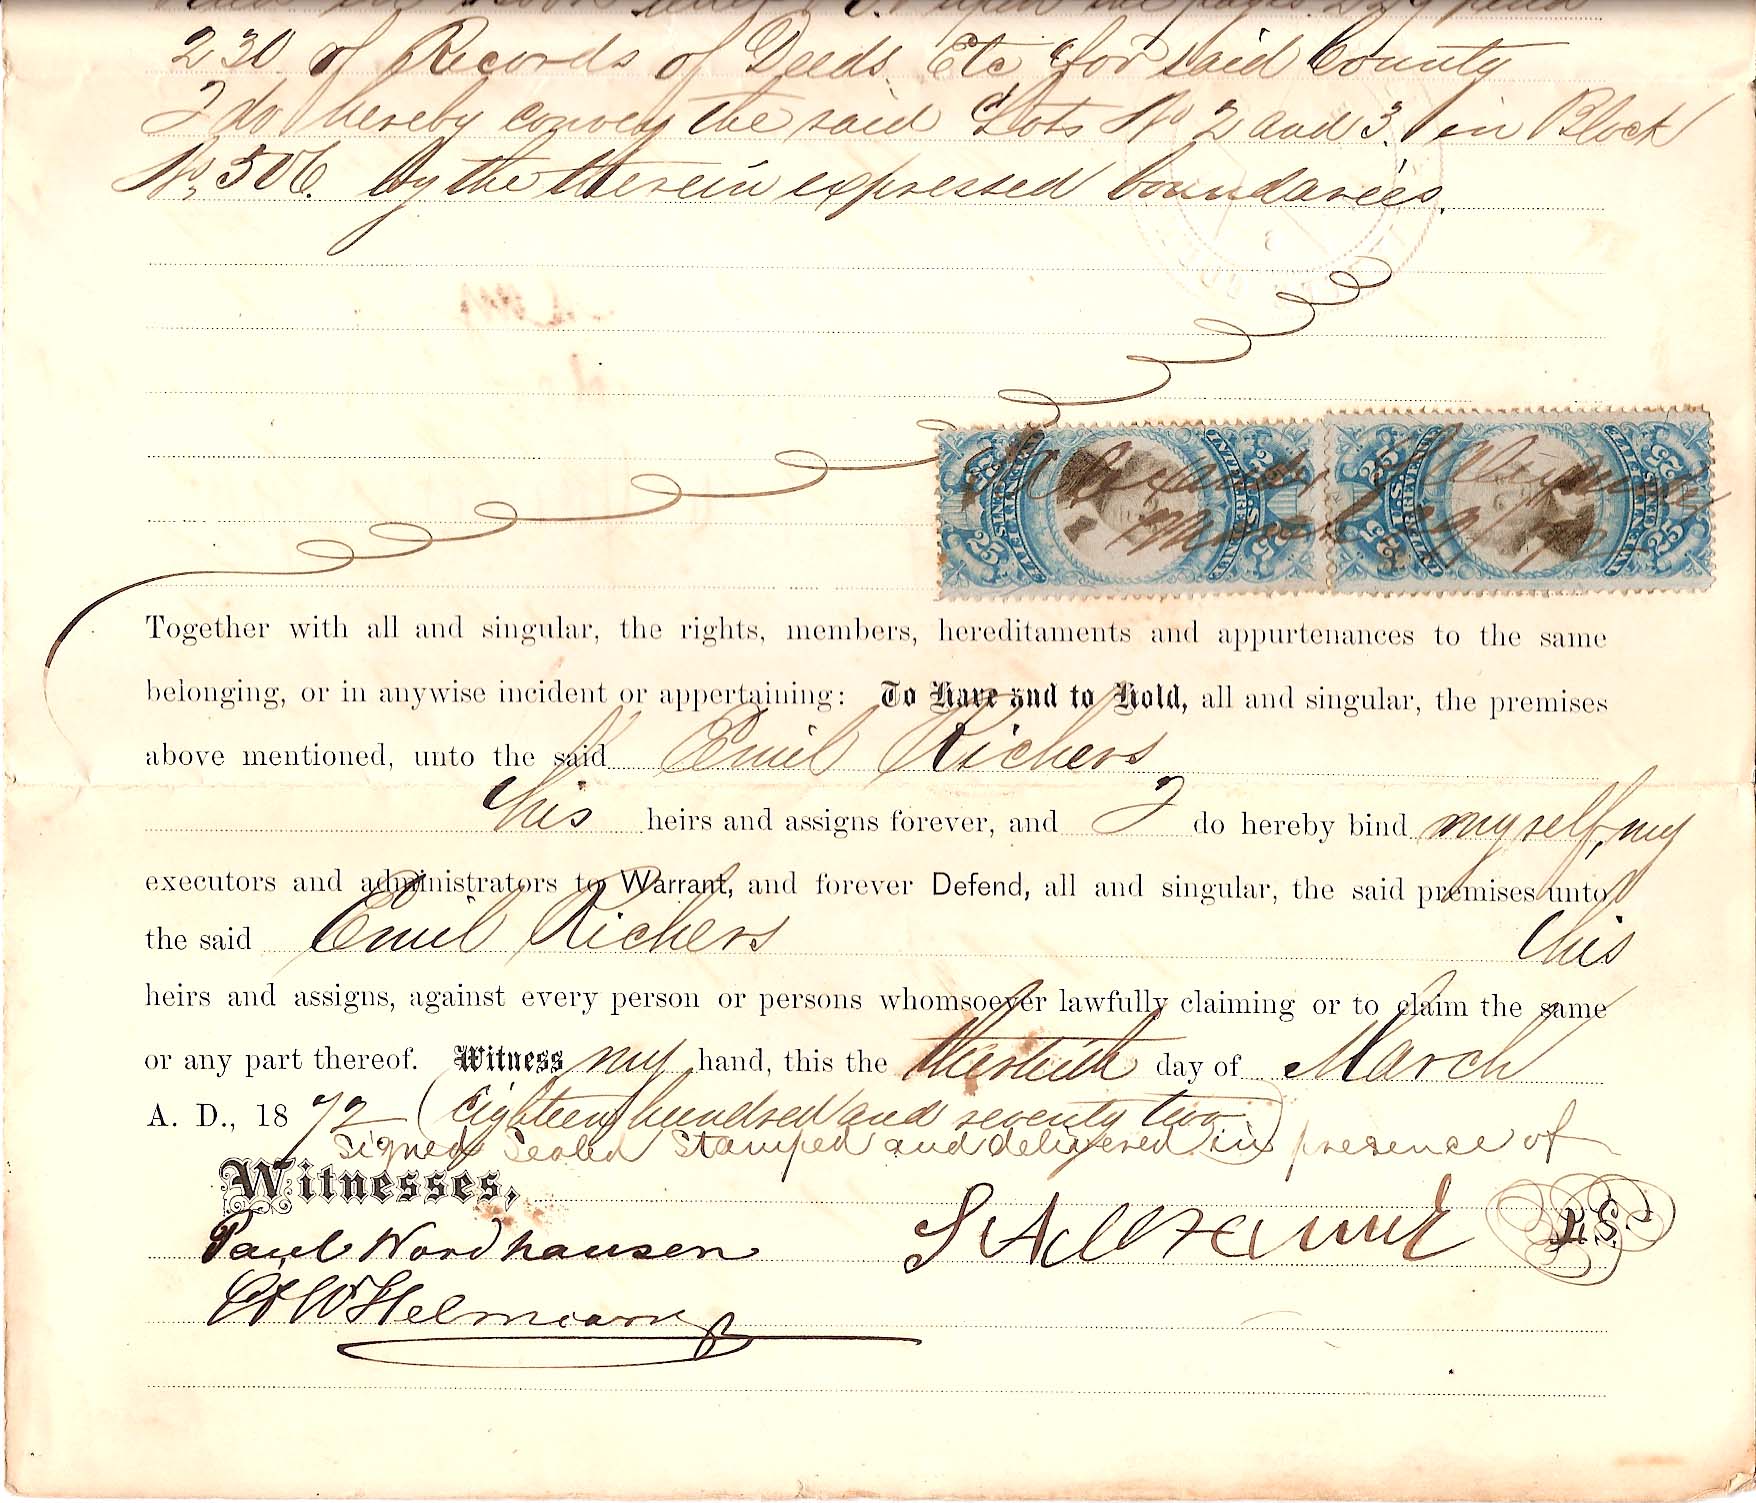 upon the pages 229 and
230 of Records of Deeds Etc for said County
I do hereby convey the said Lots No 2 and 3. in Block
No. 506. by the therein expressed boundaries.
March
Together with all and singular, the rights, members, hereditaments and appurtenances to the same
belonging, or in anywise incident or appertaining: To Have and to Hold, all and singular, the premises
above mentioned, unto the said Emil Richers
his heirs and assigns forever, and I do hereby bind myself, my
executors and administrators to Warrant, and forever Defend, all and singular, the said premises unto
the said Emil Richers his
heirs and assigns, against every person or persons whomsoever lawfully claiming or to claim the same
or any part thereof. Witness my hand, this the thirtieth day of March
A. D., 1872 (Eighteen hundred and seventy two)
Signed Sealed Stamped and delivered in presence of
Witnesses,
Paul Nordhausen L.S.